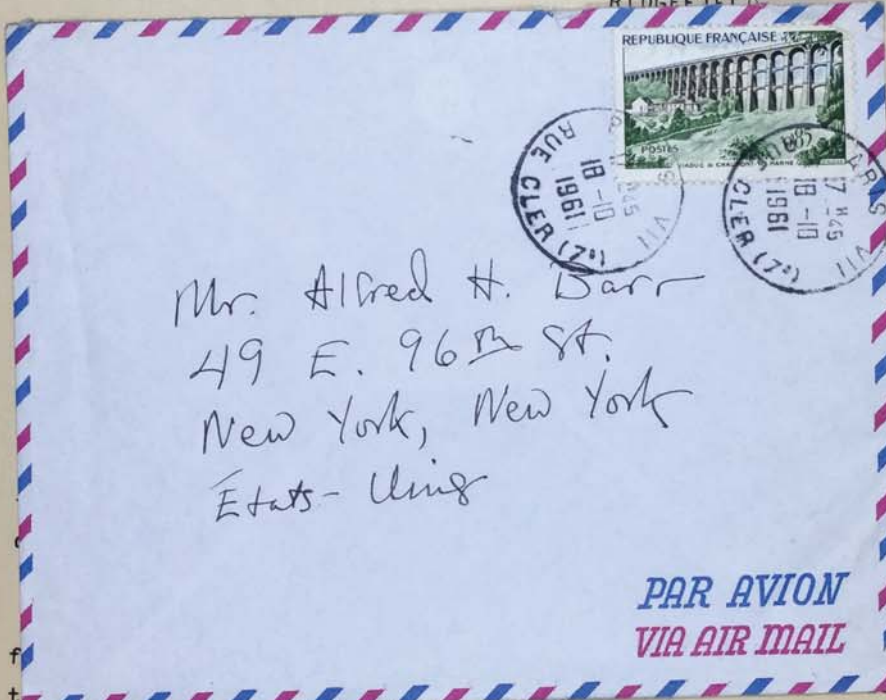 RIDGEFIELD
REPUBLIQUE FRANÇAISE
POSTES
VIADUC de CHAUMONT
MARNE
PARIS VII
17 H45
18-10
1961
RUE CLER (7e)
PARIS VII
17 H45
18-10
1961
RUE CLER (7e)
Mr. Alfred H. Barr
49 E. 96th St.
New York, New York
États-Unis
PAR AVION
VIA AIR MAIL
f
t